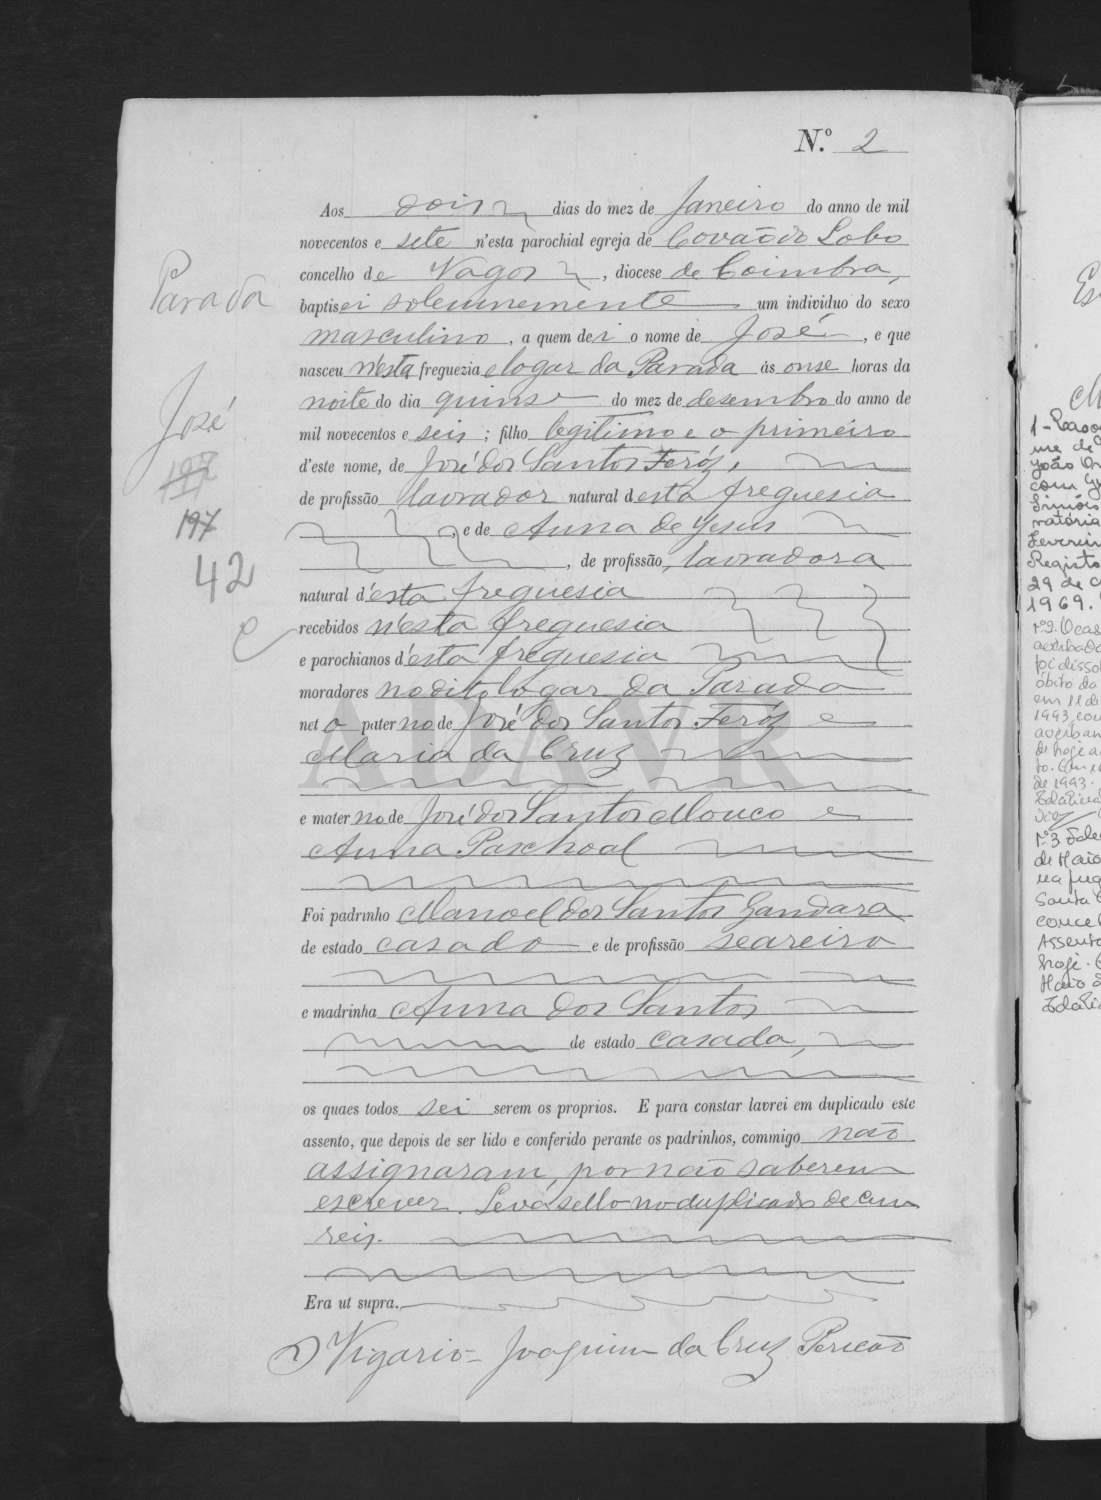 N.º 2
Aos dois dias do mez de Janeiro do anno de mil
novecentos e sete n'esta parochial egreja de Covão do Lobo
concelho de Vagos, diocese de Coimbra,
baptisei solemnemente um individuo do sexo
masculino, a quem dei o nome de José, e que
nasceu n'esta freguezia e logar da Parada ás onse horas da
noite do dia quinse do mez de desembro do anno de
mil novecentos e seis; filho legitimo e o primeiro
d'este nome, de José dos Santos Feróz,
de profissão lavrador natural desta freguesia
, e de Anna de Jesus
, de profissão, lavradora
natural d'esta freguesia
recebidos n'esta freguesia
e parochianos d'esta freguesia
moradores no dito logar da Parada
neto paterno de José dos Santos Feróz e
Maria da Cruz
e materno de José dos Santos Mouco e
Anna Paschoal
Foi padrinho Manoel dos Santos Gandara
de estado casado e de profissão seareiro
e madrinha Anna dos Santos
de estado casada,
os quaes todos sei serem os proprios. E para constar lavrei em duplicado este
assento, que depois de ser lido e conferido perante os padrinhos, commigo não
assignaram, por não saberem
escrever. Leva sello no duplicado de cem
reis.
Era ut supra.
O Vigario = Joaquim da Cruz Pericão
Parada
José
197
197
42
ADAVR
1969.
1993
de 1993.
de Maio
Santa
Assento
hoje.
Maio